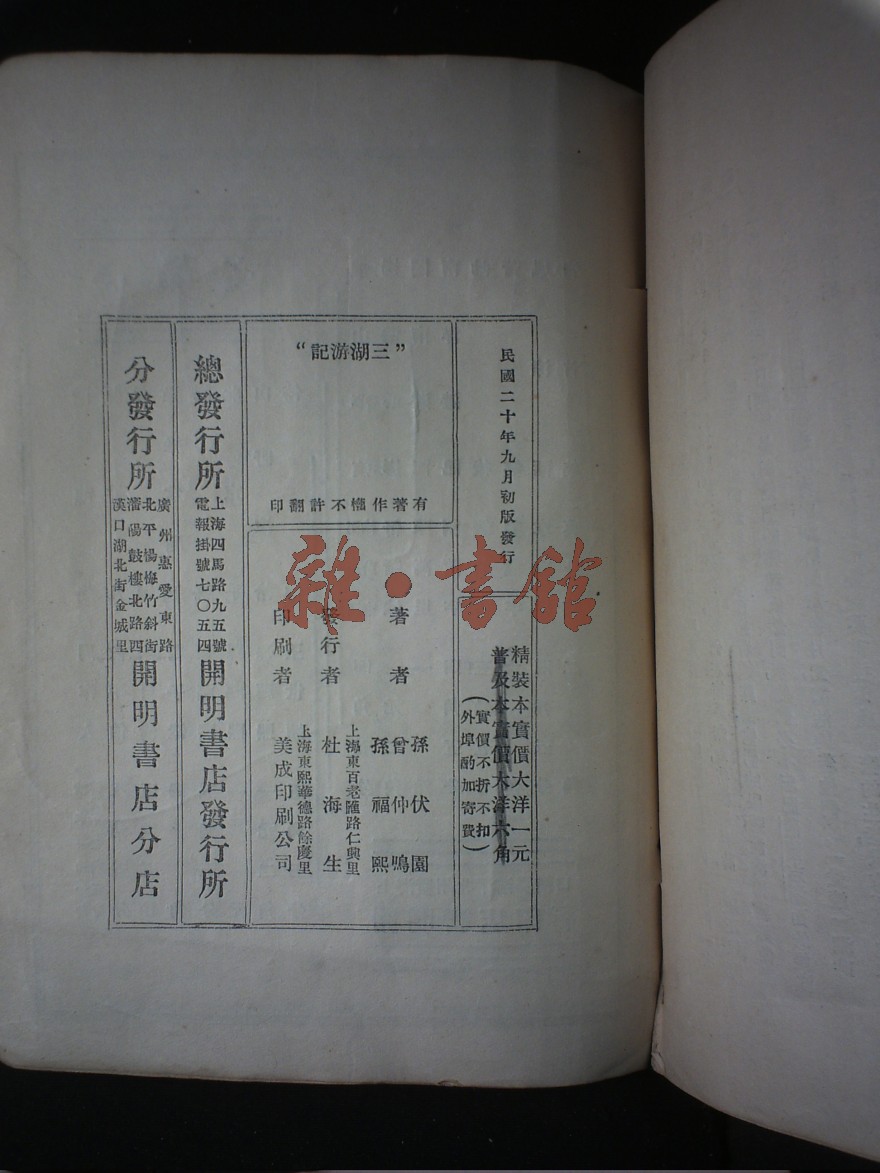 民國二十年九月初版發行
精裝本實價大洋一元
普及本實價大洋六角
(實價不折不扣
外埠酌加寄費)
“三湖游記”
有著作權不許翻印
著者
孫伏園
曾仲鳴
孫福熙
發行者
上海東百老匯路仁興里
杜海生
印刷者
上海東熙華德路餘慶里
美成印刷公司
總發行所
上海四馬路九五號
電報掛號七〇五四
開明書店發行所
分發行所
廣州惠愛東路
北平楊梅竹斜街
瀋陽鼓樓北路四
漢口湖北街金城里
開明書店分店
雜·書館